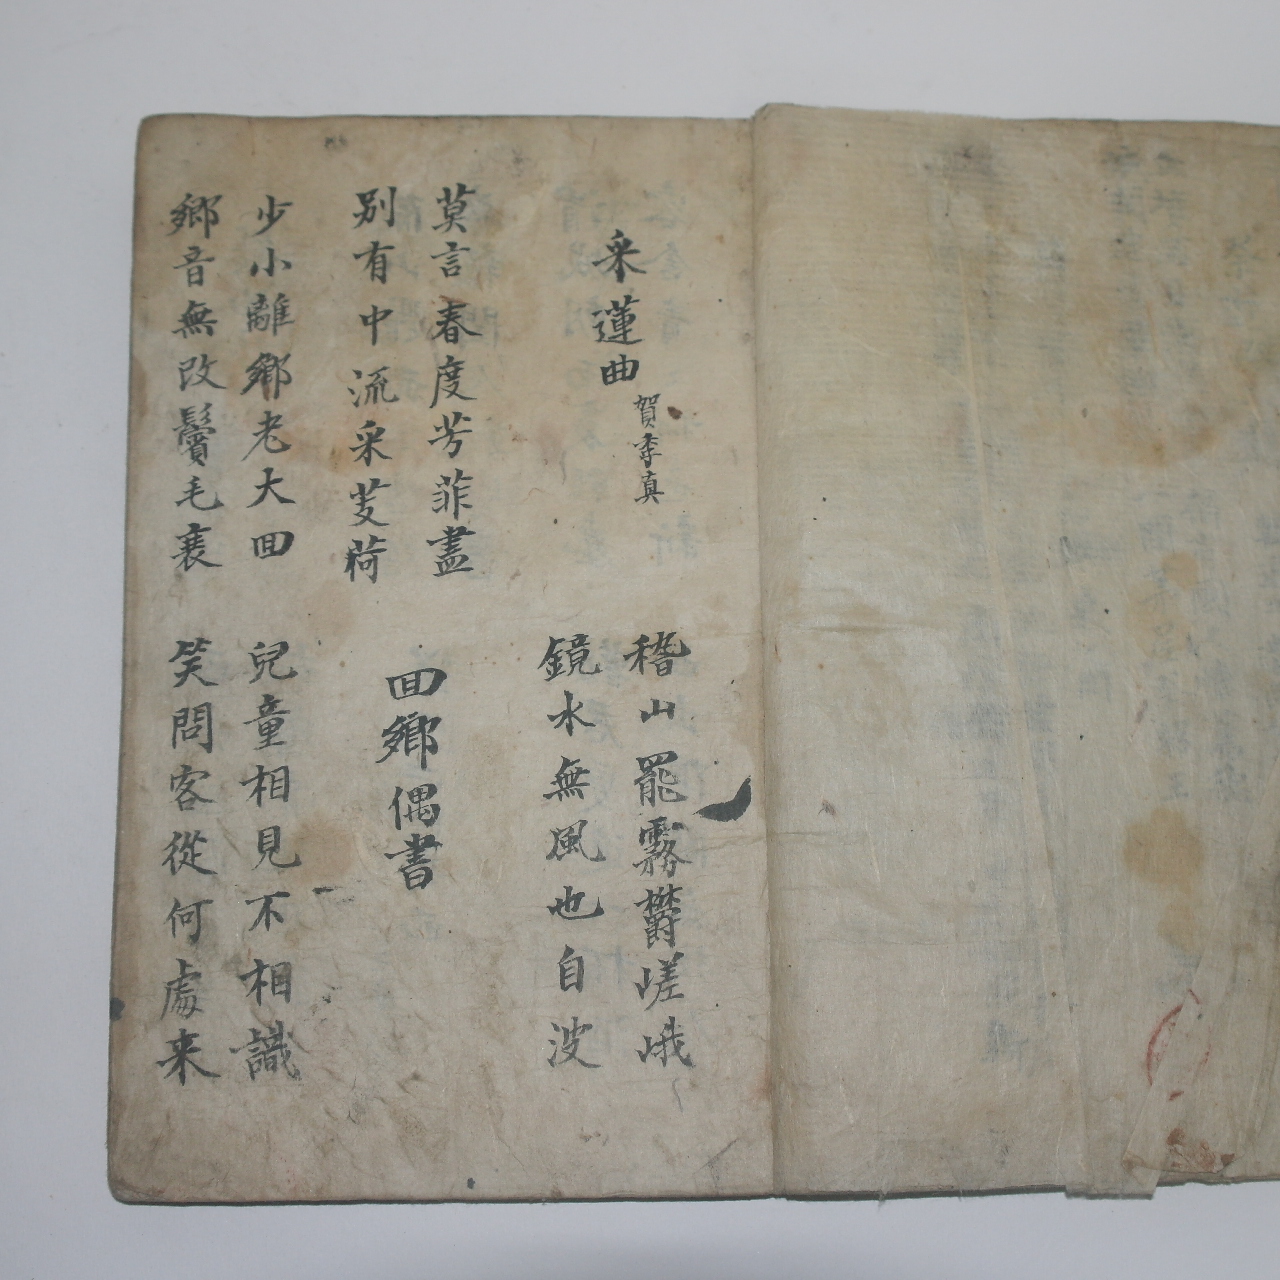 采蓮曲
賀季真
稽山罷霧欝嵯峨
鏡水無風也自波
莫言春度芳菲盡
別有中流采芰荷
囬鄉偶書
少小離鄉老大囬
鄉音無改鬢毛衰
兒童相見不相識
笑問客從何處来